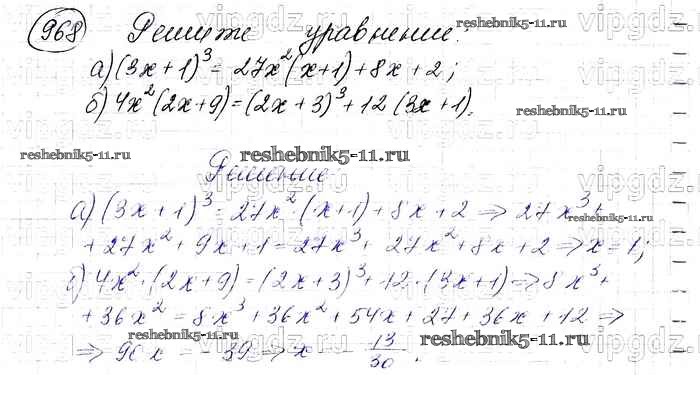 968 Решите уравнение:
а) (3x+1)³ = 27x²(x+1)+8x+2;
б) 4x²(2x+9)=(2x+3)³+12(3x+1).
Решение
а) (3x+1)³ = 27x²·(x+1)+8x+2 => 27x³+
+27x²+9x+1=27x³+27x²+8x+2 => x=1;
б) 4x²·(2x+9)=(2x+3)³+12·(3x+1) => 8x³+
+36x²=8x³+36x²+54x+27+36x+12 =>
=> 90x = -39 => x - 13/30.
reshebnik5-11.ru
reshebnik5-11.ru
reshebnik5-11.ru
reshebnik5-11.ru
reshebnik5-11.ru
reshebnik5-11.ru
reshebnik5-11.ru
vipgdz.ru